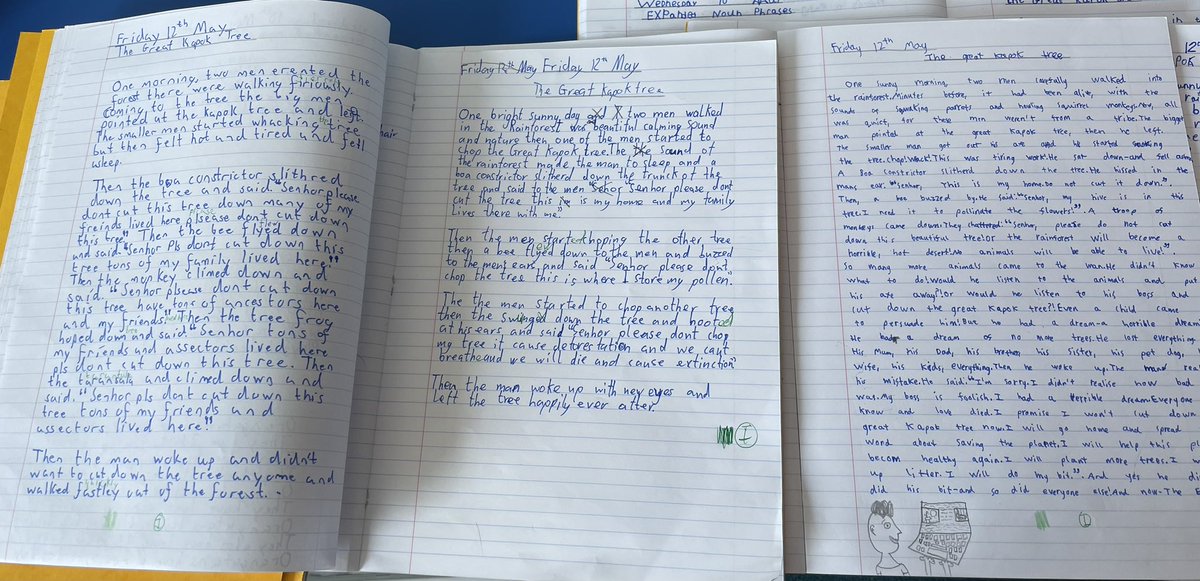 Friday 12th May
The Great Kapok Tree
One morning, two men erented the
forest there were walking firiously.
coming to the tree the big men
pointed at the kapok tree and left.
The smaller men started whacking tree
but then felt hot and tired and fell
asleep.
Then the boa constrictor slithred
down the tree and said "Senhor please
dont cut this tree down many of my
freinds lived here plsease dont cut down
this tree" Then the bee flyed down
and said "Senhor Pls dont cut down this
tree tons of my family lived here"
Then the monkey climed down and
said "Senhor plsease dont cut down
this tree have tons of ancestors here
and my friends." Then the tree frog
hoped down and said "Senhor tons of
my friends and assectors lived here
pls dont cut down this tree. Then
the taransala and climed down and
said. "Senhor pls dont cut down this
tree tons of my friends and
assectors lived here!"
Then the man woke up and didn't
want to cut down the tree anyome and
walked fastley out of the forest.
I
hair
Friday 12th May Friday 12th May
The Great Kapok tree
One, bright sunny day two men walked
in the rainforest was beautiful calming sound
and nature then one of the men started to
chop the Great Kapok tree. The sound of
the rainforest made, the man to sleep and a
boa constrictor slitherd down the trunck of the
tree and said to the men "Senhor please, dont
cut the tree this is my home and my family
lives there with me."
Then the men started hopping the other tree
then a bee flyed down to the men and buzzed
to the ment ears and said "Senhor please dont
chop the tree this is where I store my pollen.
The the men started to chop another tree
then the swinged down the tree and hooted
at his ears and said "Senhor please, dont chop
my tree it cause deforestation and we cant
breathe and we will die and cause extinction"
Then the man woke up with ney eyes and
left the tree happily ever after.
I
Wednesday 10
EXPanded Noun Phrases
Friday 12th May
The great kapok tree
One sunny morning, two men carefully walked into
the rainforest. Minutes before, it had been alive, with the
sounds of squaking parrots and howling squirrel monkeys. Now, all
was quiet, for these men weren't from a tribe. The bigger
man pointed at the great Kapok tree, then he left.
The smaller man got out his axe and he started
the tree. Chop! Whack! This was tiring work! He sat down-and fell
A Boa constrictor slitherd down the tree. He hissed in the
mans ear. "Senhor, This is my home. Do not cut it down."
Then, a bee buzzed by. He said: "Senhor, my hive is in this
tree. I need it to pollinate the flowers!". A troop of
monkeys came down. They chattered: "Senhor, please do not cut
down this beautiful tree! Or the rainforest will become a
horrible, hot desert. No animals will be able to live!.
So many more animals came to the man. He didn't know
what to do! Would he listen to the animals and put
his axe away?! Or would he listen to his boss and
cut down the great Kapok tree?! Even a child came
to persuade him! But he had a dream-a horrible dream
He had a dream of no more trees. He lost everything.
His Mum, his Dad, his brother, his sister, his pet dog,
wife, his kids, everything. Then he woke up. The man rea
his mistake. He said: "I'm sorry. I didn't realise how bad
was. My boss is foolish. I had a terrible dream. Everyone
know and love died. I promise I won't cut down
great Kapok tree now. I will go home and spread
word about saving the planet. I will help this pl
becom healthy again. I will plant more trees. I w
up litter. I will do my bit." And yes he di
did his bit-and so did everyone else! And now-The E
I